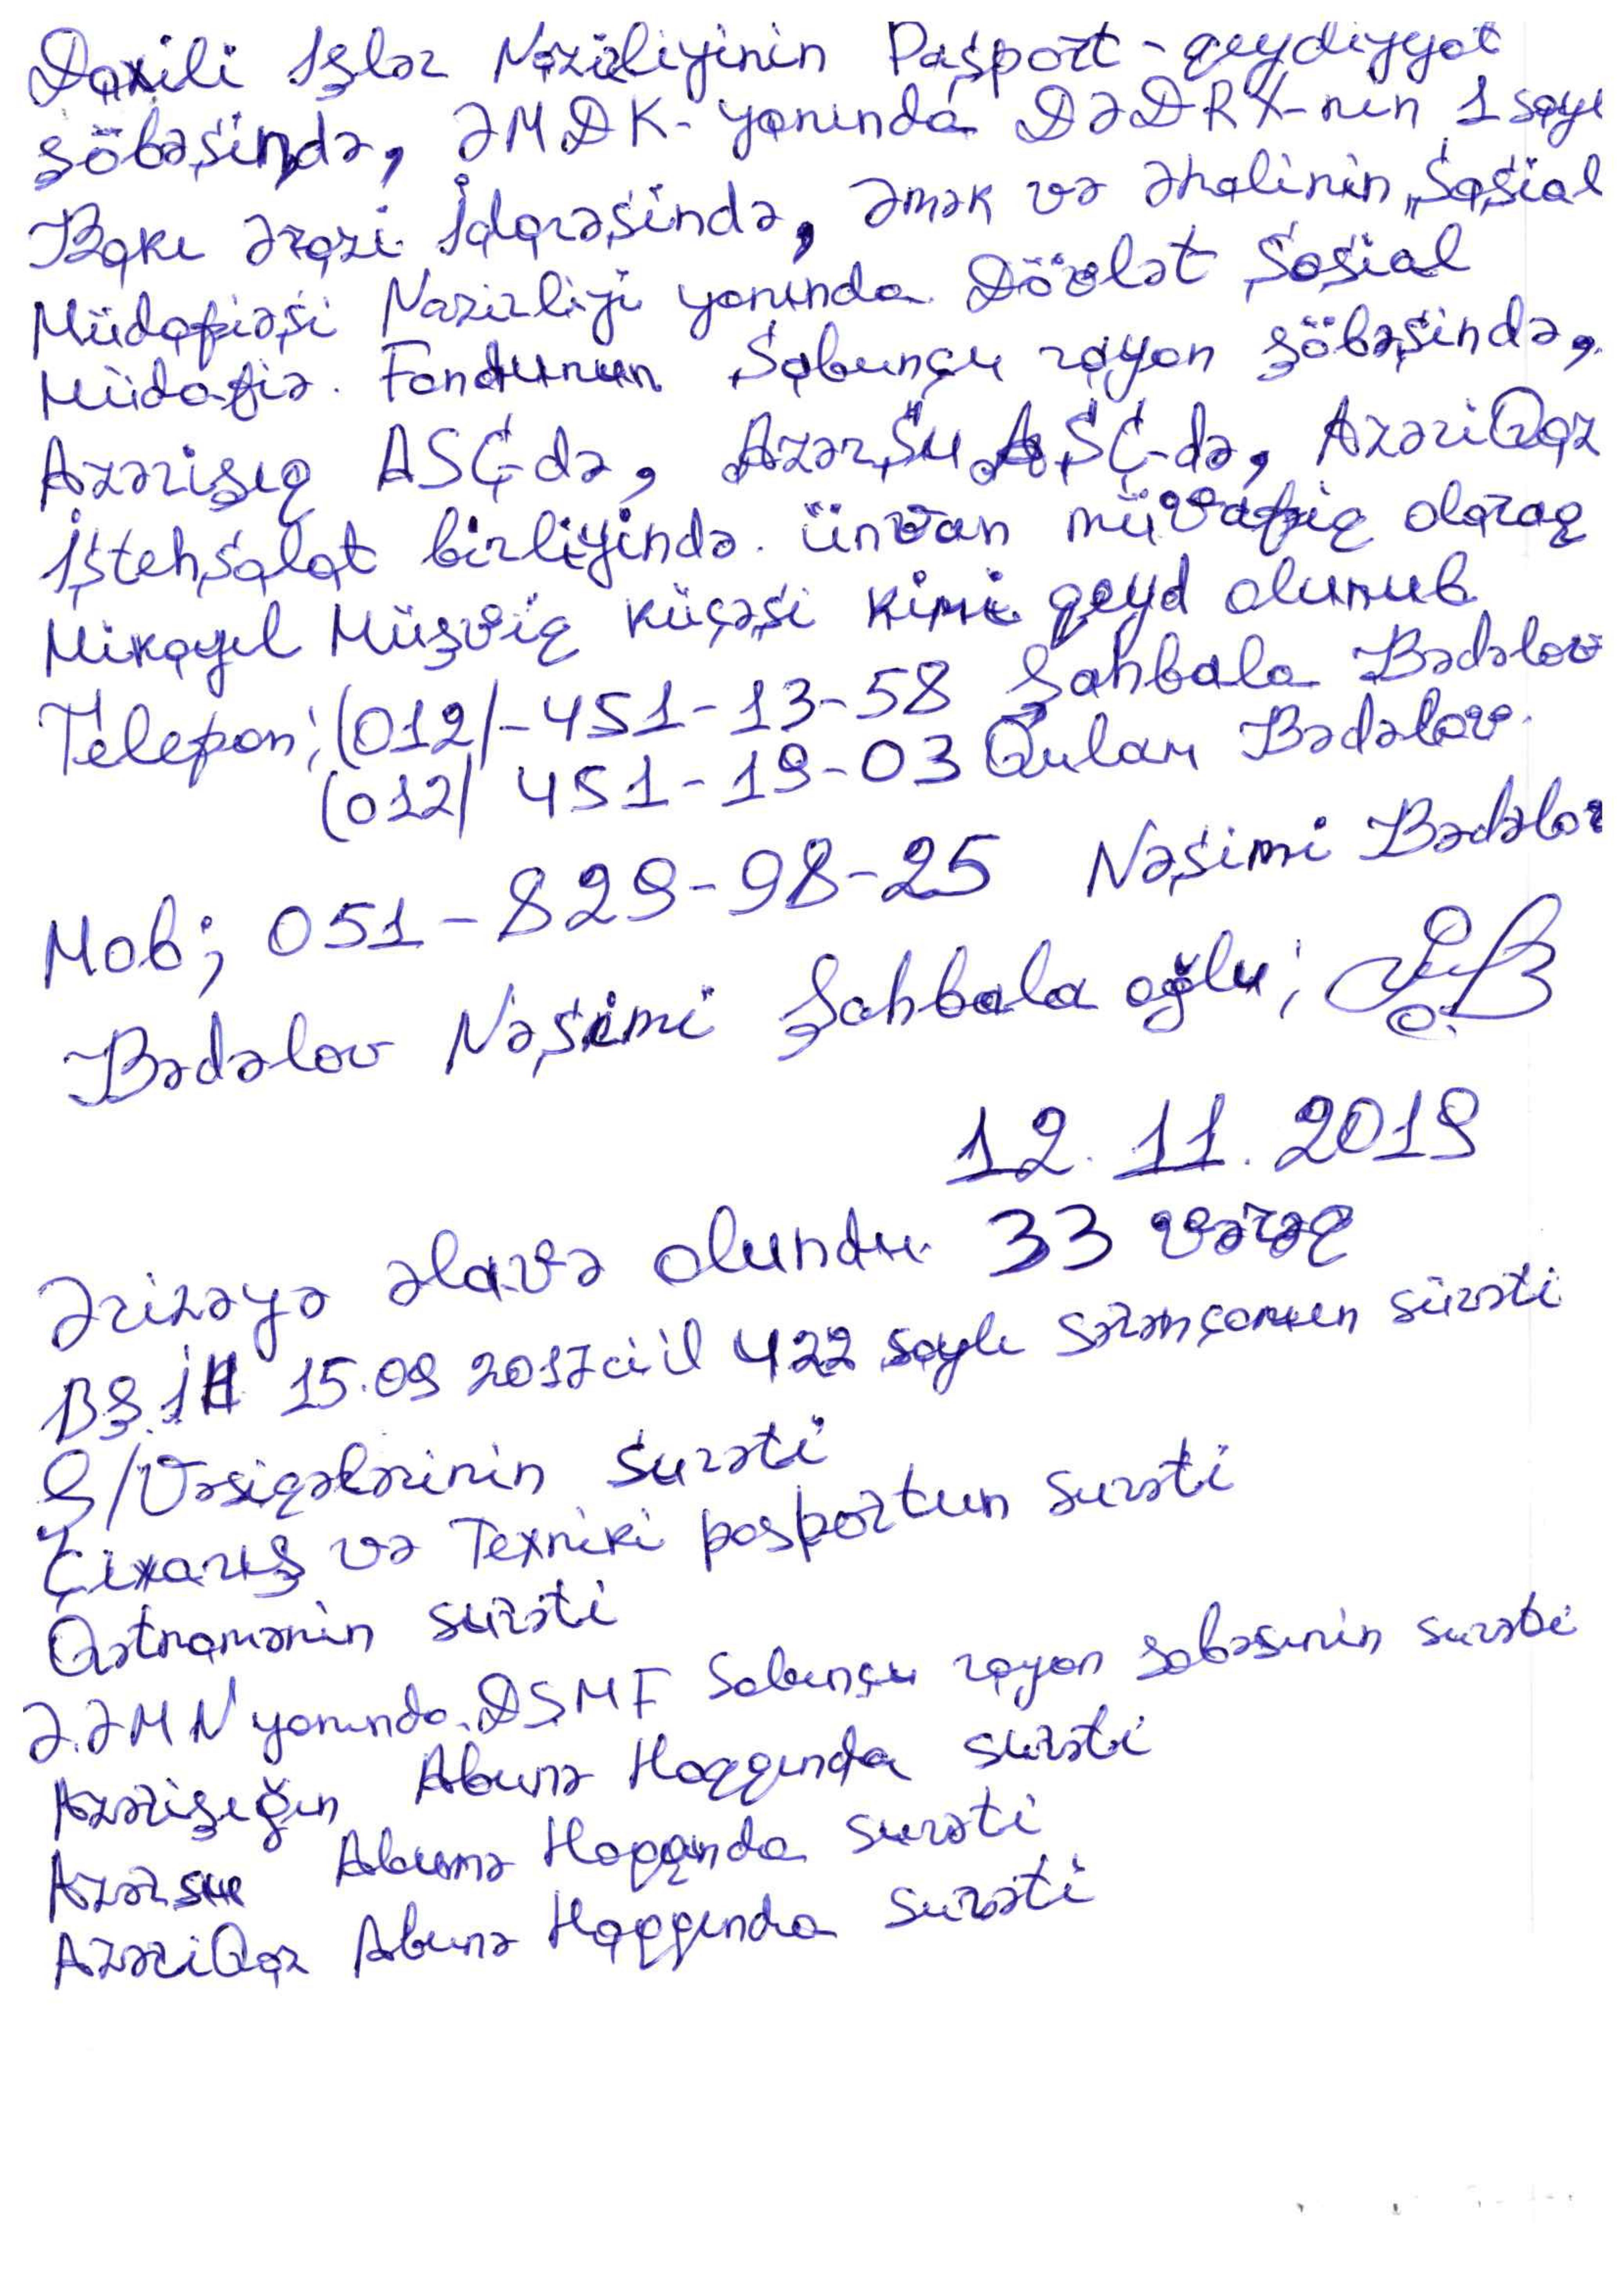 Daxili İşlər Nazirliyinin Paspört-qeydiyyat
şöbəsində, ƏMDK-yanında DƏDRX-nın 1 sayı
Bakı Ərazi İdarəsində, Əmək və Əhalinin Sasial
Müdafiəsi Nazirliyi yanında Dövlət Sosial
Müdafiə. Fondunun Sabunçu rayon şöbəsində,
Azərişıq ASÇ-də, AzərSu ASÇ-də, AzəriQaz
İstehsalat birliyində. ünvan müvafiq olaraq
Mikayıl Müşviq küçəsi kimi qeyd olunub
Telepon; (012/-451-13-58 Şahbala Bədəlov
(012/ 451-19-03 Qulam Bədəlov.
Mob; 051-829-98-25 Nəsimi Bədəlov
Bədəlov Nəsimi Şahbala oğlu;
12. 11. 2019
Ərizəyə əlavə olundu 33 vərəq
BŞ.İH 15.09 2017ci il 422 saylı sərəncamın sürəti
Ş/Vəsiqələrinin surəti
Çixarış və Texniki pasportun surəti
Qətnamənin surəti
Ə.ƏMN yanında. DSMF Sabunçu rayon şobəsinin surəti
Azərişığın Abunə Haqqında surəti
Azərsu Abunə Haqqında surəti
AzəriQaz Abunə Haqqında surəti